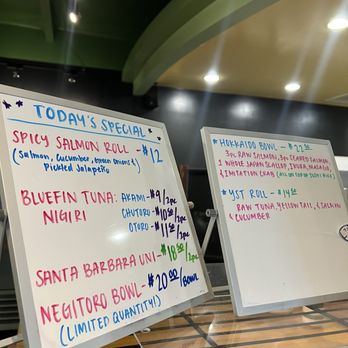 TODAY'S SPECIAL
SPICY SALMON ROLL - $12
(Salmon, Cucumber, Green Onions &
Pickled Jalapeño
BLUEFIN TUNA: AKAMI - $9/2pc
NIGIRI CHUTORO - $10/2pc
OTORO - $11/2pc
SANTA BARBARA UNI - $18.00/2pc
NEGITORO BOWL - $20.00/BOWL
(LIMITED QUANTITY!)
* HOKKAIDO BOWL -
3pc RAW SALMON, 3pc SEARED SALMON,
1 WHOLE JAPAN SCALLOP, IKURA, MASAGO,
& IMITATION CRAB (ALL ON TOP OF SUSHI RICE)
* YST ROLL - $14
RAW TUNA, YELLOW TAIL, &
CUCUMBER